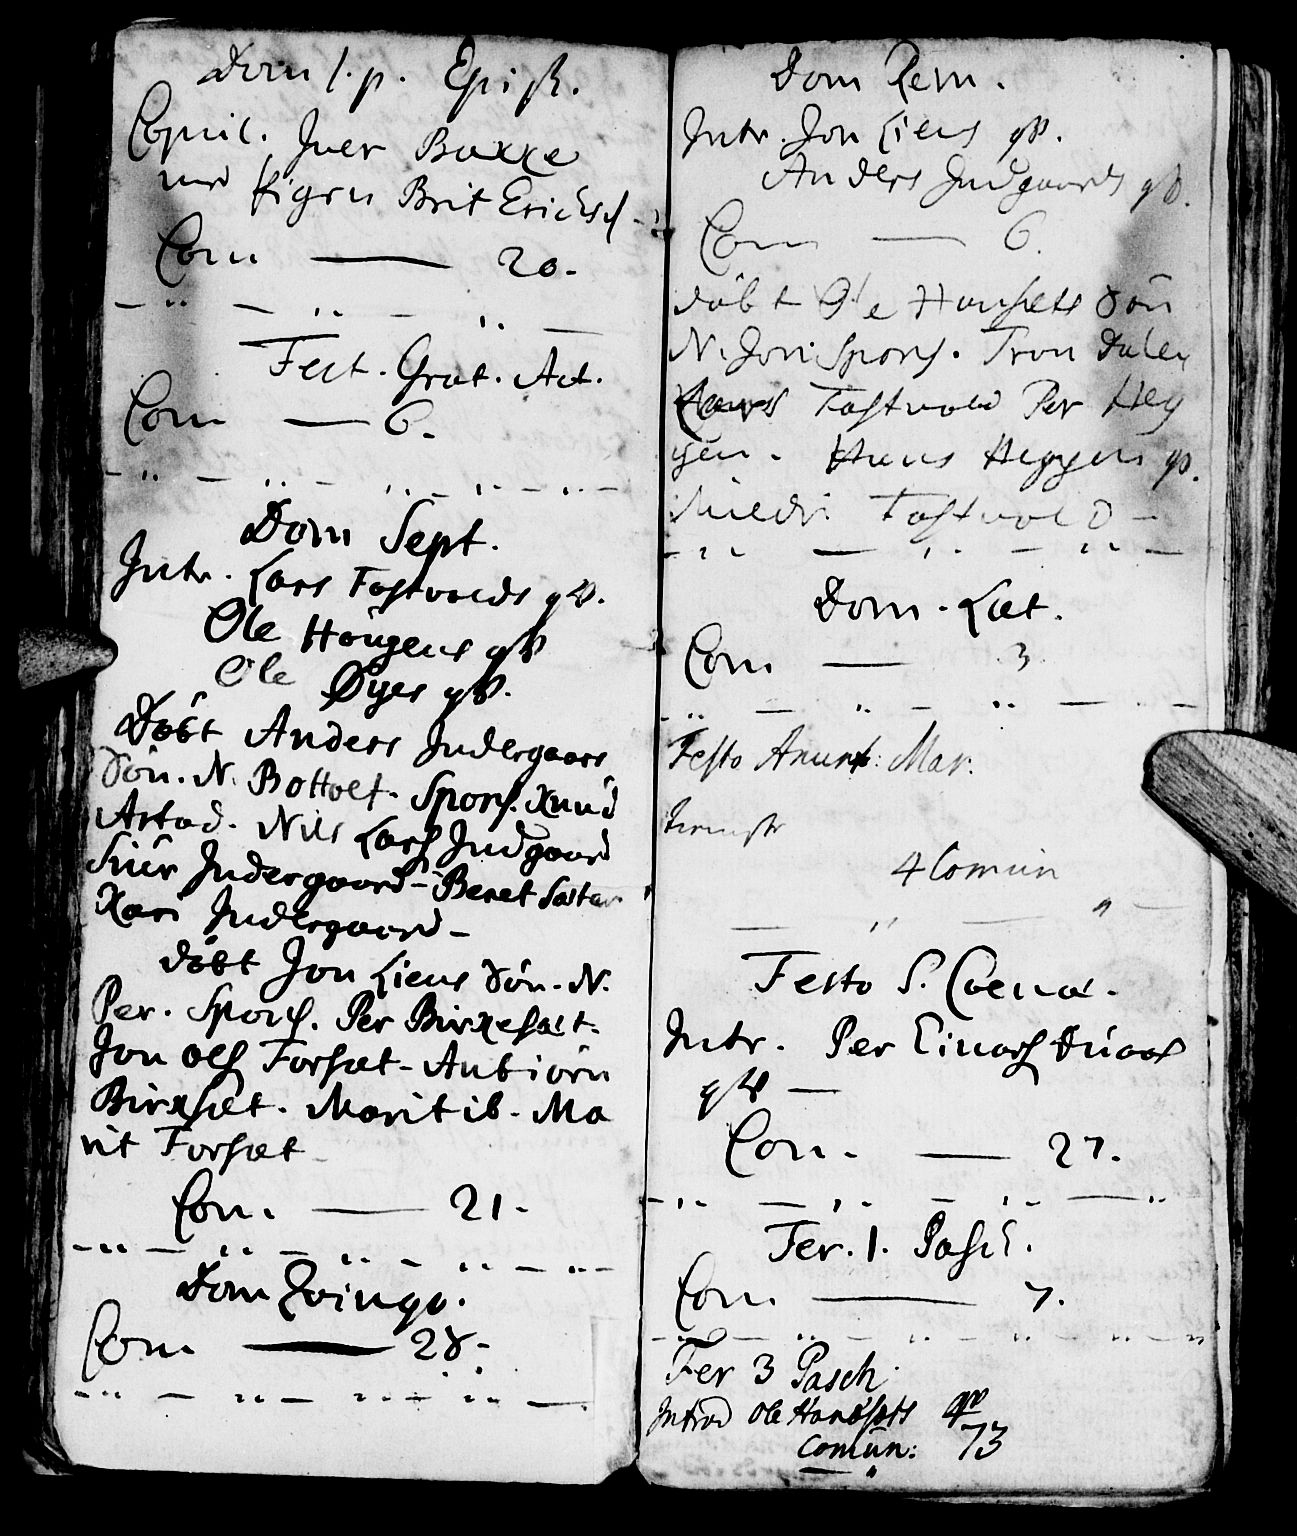 Dom 1. p. Epiph.
Copul. Juer Baxxe
med Pigen Brit Erichsd
Com — 20.
Fest. Grat. Act.
Com — 6.
Dom Sept.
Intr. Lars Fastvolds qv.
Ole Hougens qv
Ole Øyes qv.
Döbt Anders Indergaars
Sön. N. Bottolf. Spons. Knud
Astad. Nils Lars Indgaard
Siur Indergaard - Beret
Kari Indergaard -
döbt Jon Liens Sön. N.
Per. Spons. Per Birkesæt.
Jon Ols Forsæt - Anbiörn
Birksæt. Marit ib. Ma
rit Forsæt
Com. — 21.
Dom Qvinqv.
Com — 28.
Dom Rem.
Intr. Jon Liens qv.
Anders Indgaards qv.
Com — 6.
döbt Ole Hansets Sön
N. Jon Spons. Tron Dalen
Fastvold Per Heg
gen. Hans Heggen qv.
Fastvold -
Dom. Læt.
Com — 3
Festo Anunt: Mar.
4 Comun
Festo S. Coenæ.
Intr. Per Einars
qv —
Com. — 27.
Fer. 1. Pasch.
Com — 7.
Fer 3 Pasch.
Introd Ole Hansets qv
comun: 73